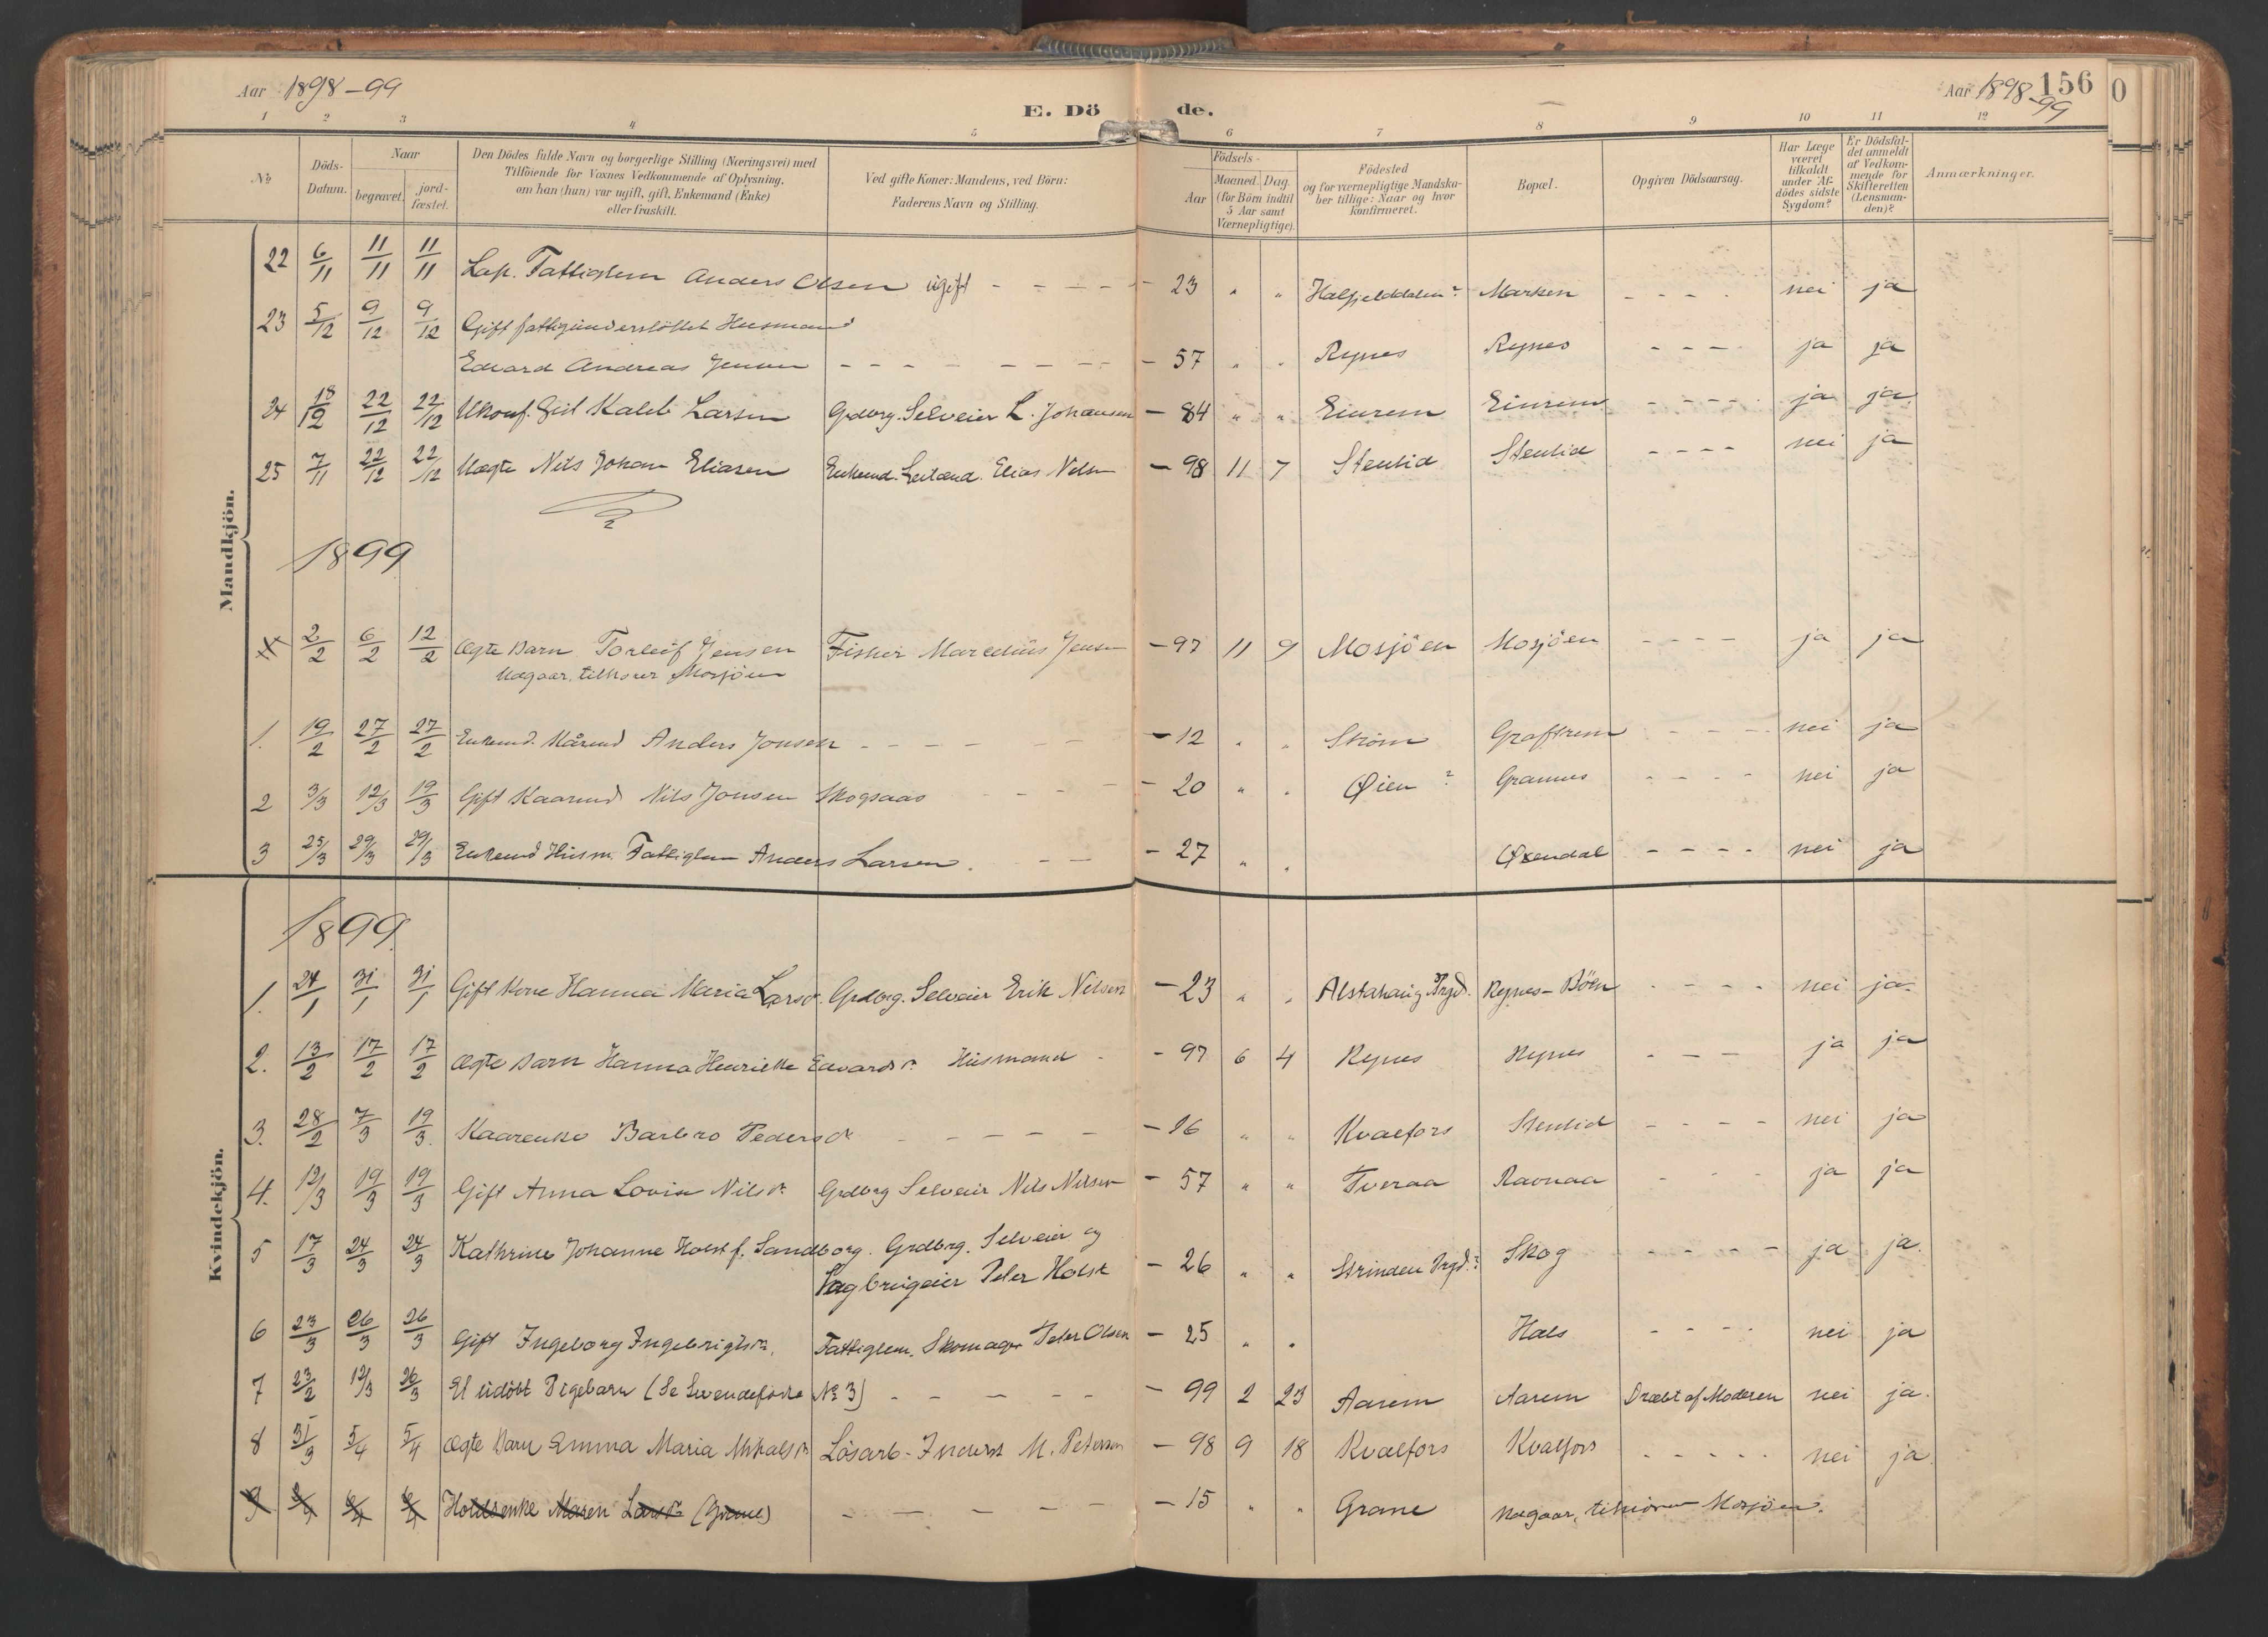 Aar 1898-99
E. Döde.
Aar 1898-99
156
0
1 2 3 4 5 6 7 8 9 10 11 12
No
Döds-Datum.
Naar
begravet.
jord-fæstet.
Den Dödes fulde Navn og borgerlige Stilling (Næringsvei) med
Tilföiende for Voxnes Vedkommende af Oplysning,
om han (hun) var ugift, gift, Enkemand (Enke)
eller fraskilt.
Ved gifte Koner: Mandens, ved Börn:
Faderens Navn og Stilling.
Födsels-
Aar
Maaned. Dag.
(for Börn indtil
5 Aar samt
Værnepligtige).
Födested
og for værnepligtige Mandska-
ber tillige: Naar og hvor
konfirmeret.
Bopæl.
Opgiven Dödsaarsag.
Har Læge
været
tilkaldt
under Af-
dödes sidste
Sygdom?
Er Dödsfal-
det anmeldt
af Vedkom-
mende for
Skifteretten
(Lensman-
den)?
Anmærkninger.
Mandkjön.
22 6/11 11/11 11/11 Lap. Fattiglem Anders Olsen ugift - - - - - 23 " " Halfjelddalen? Marken - - - - nei ja
23 5/12 9/12 9/12 Gift fattigunderstöttet Husmand
Edvard Andreas Jensen - - - - - - - - 57 " " Rynes Rynes - - - - ja ja
24 18/12 22/12 22/12 Ukonf. Gut Kaleb Larsen Grdbrg. Selveier L. Johansen - 84 " " Einrem Einrem - - - - ja ja
25 7/11 22/12 22/12 Uægte Nils Johan Eliasen Enkemd. Leilænd. Elias Nilsen - 98 11 7 Stenlid Stenlid - - - - nei ja
1899
2/2 6/2 12/2 Ægte Barn Torleif Jensen Fisker Marcelius Jensen - 97 11 9 Mosjöen Mosjöen - - - - ja ja
Udgaar, tilhörer Mosjöen
1. 19/2 27/2 27/2 Enkemd. Kårmd Anders Jonsen - - - - - - 12 " " Ström Graftrem - - - - nei ja
2 3/3 12/3 19/3 Gift Kaarmd Nils Jonsen Skogsaas - - - - 20 " " Øien? Grannes - - - - nei ja
3 25/3 29/3 29/3 Enkemd Husm. Fattiglem Anders Larsen. - - - 27 " " Øxendal - - - - nei ja
Kvindekjön.
1899.
1. 24/1 31/1 31/1 Gift Kone Hanna Maria Larsdr. Grdbrg. Selveier Erik Nilsen - 23 " " Alstahaug Prgd. Rynes-Böen - - - - nei ja.
2. 13/2 17/2 17/2 Ægte Barn Hanna Henriette Edvardsdr. Husmand - - 97 6 4 Rynes Rynes - - - ja ja
3. 28/2 7/3 19/3. Kaarenke Barbro Pedersdr - - - - - - 16 " " Kvalfors Stenlid - - - - nei ja
4. 12/3 19/3 19/3 Gift Anna Lovise Nilsdr. Grdbrg Selveier Nils Nilsen - 57 " " Tveraa Ravnaa - - - ja ja
5 17/3 24/3 24/3 Kathrine Johanne Holst f. Sandborg. Grdbrg. Selveier og
Sagbrugeier Peter Holst - 26 " " Strinden Prgd.? Skog - - - - - ja ja.
6 23/3 26/3 26/3 Gift Ingeborg Ingebrigtsdr. Fattiglem. Skomager Peter Olsen - 25 " " Hals - - - - nei ja
7 23/2 12/3 26/3 Et udöbt Pigebarn (Se Levendefödte No 3) - - - - - - 99 2 23 Aarem Aarem Dræbt af Moderen nei ja.
8 31/3 5/4 5/4 Ægte Barn Emma Maria Mikalsdr. Lösarb.-Inderst M. Petersen - 98 9 18 Kvalfors Kvalfors - - - - - nei ja.
9 Holdsenke Maren Larsdr. (Grane) - - - - - - 15 " " Grane Udgaar, tilhörer Mosjöen.